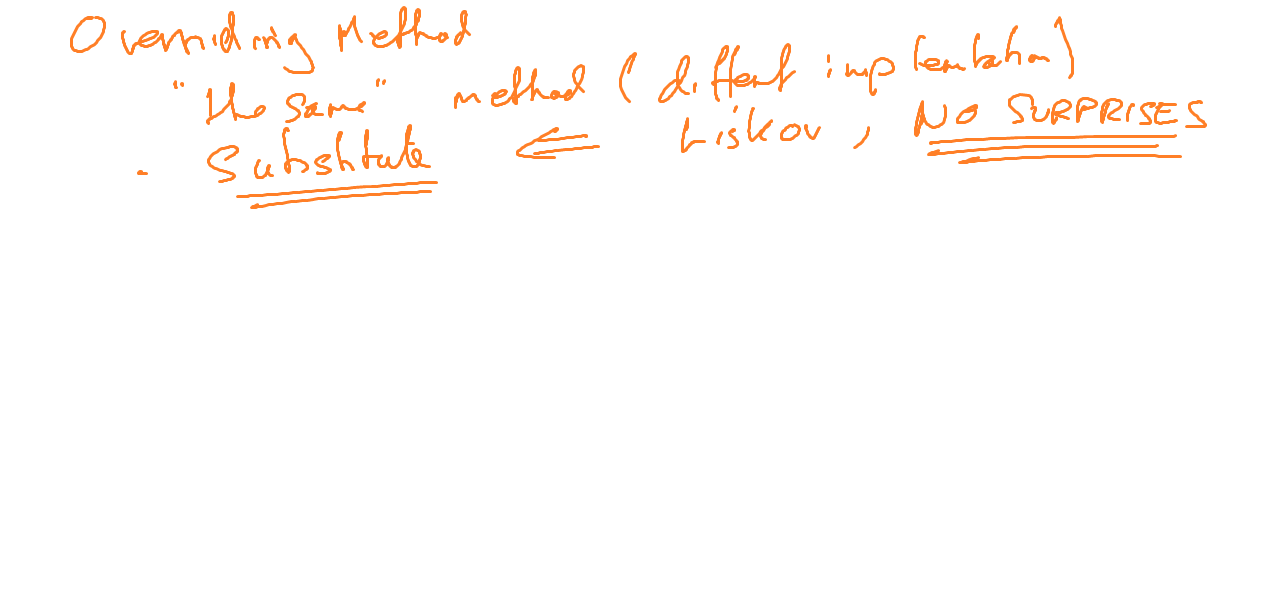 Overriding Method
"the same" method (different implementation)
. Substitute <= Liskov, NO SURPRISES